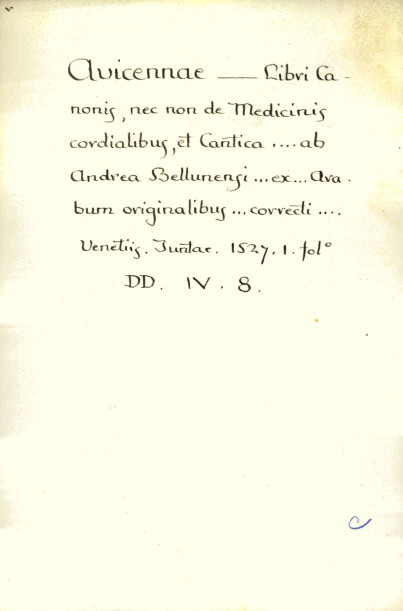 Avicennae — Libri Ca-
nonis, nec non de Medicinis
cordialibus, et Cantica .... ab
Andrea Bellunensi ... ex ... Ara-
bum originalibus ... correcti ....
Venetiis. Juntae. 1527. 1. folº
DD. IV. 8.
C